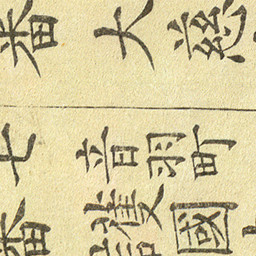 番 大慈
七 音羽町
番 護國